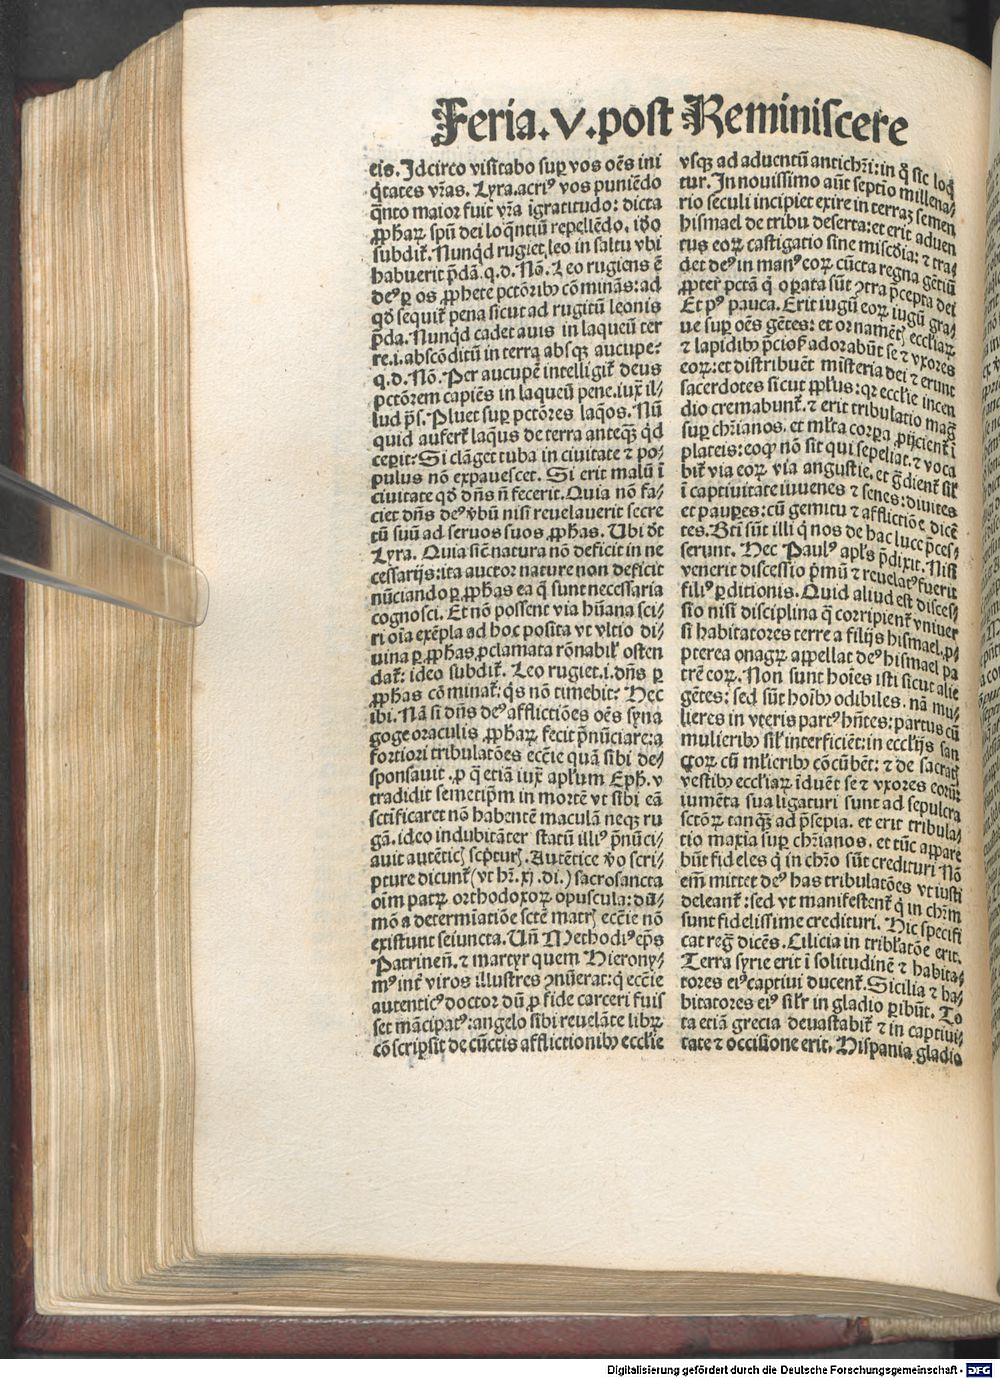 Feria.V.post Reminiscere
eis. Idcirco visitabo suꝑ vos oēs ini
q̄tates vr̄as. Lyra. acriꝰ vos puniēdo
q̄nto maior fuit vr̄a īgratitudo: dicta
ꝓpharꝝ spū dei loq̄ntiū repellēdo. iō
subdit̄. Nunqͥd rugiet leo in saltu vbi
habuerit p̄dā. q.d. Nō. Leo rugiens ē
deꝰ ꝑ os ꝓphete pctōribꝯ cōminās: ad
qd̄ sequit̄ pena sicut ad rugitū leonis
p̄da. Nunqͥd cadet auis in laqueū ter
re .i. abscōditū in terra absqꝫ aucupe:
q.d. Nō. Per aucupē intelligit̄ deus
pctōrem capiēs in laqueū pene. iux̄ il⸗
lud ps̄. Pluet suꝑ pctōres laq̄os. Nū
quid aufert̄ laq̄us de terra anteqꝫ qͥd
ceꝑit: Si clāget tuba in ciuitate ⁊ po⸗
pulus nō expauescet. Si erit malū ī
ciuitate qd̄ dn̄s n̄ fecerit. Quia nō fa⸗
ciet dn̄s deꝰ v̄bū nisi reuelauerit secre
tū suū ad seruos suos ꝓph̄as. Ubi dt̄
Lyra. Quia sic̄ natura nō deficit in ne
cessarijs: ita auctor nature non deficit
nūciando ꝑ ꝓph̄as ea q̄ sunt necessaria
cognosci. Et nō possent via hūana sci⸗
ri oīa exēpla ad hoc posita vt vltio di⸗
uina ꝑ ꝓph̄as ꝓclamata rōnabil̄ osten
dat̄: ideo subdit̄. Leo rugiet .i. dn̄s ꝑ
ꝓph̄as cōminat̄: qͥs nō timebit: Hec
ibi. Nā si dn̄s deꝰ afflictiōes oēs syna
goge oraculis ꝓpharꝝ fecit p̄nūciare: a
fortiori tribulatōes ecc̄ie quā sibi de⸗
sponsauit. ꝓ q̄ etiā iux̄ apl̄um Eph. v
tradidit semetip̄m in mortē vt sibi eā
sctificaret nō habentē maculā neqꝫ ru
gā. ideo indubitāter statū illiꝰ p̄nūci⸗
auit autētic̄ scpturꝭ. Autētice v̄o scri⸗
pture dicunt̄ (vt hr̄. xj. di.) sacrosancta
oīm patrꝝ orthodoxorꝝ opuscula: dū⸗
mō a determiatiōe sctē matrꝭ ecc̄ie nō
existunt seiuncta. Un̄ Methodiꝰ ep̄s
Patrineñ. ⁊ martyr quem Hierony⸗
mꝰ int̄ viros illustres ꝯnūerat: q̄ ecc̄ie
autenticꝰ doctor dū ꝓ fide carceri fuis
set mācipatꝰ: angelo sibi reuelāte librꝝ
cōscripsit de cūctis afflictionibꝯ ecclīe
vsqꝫ ad aduentū antichr̄i: in q̄ sic loqͥ
tur. In nouissimo aūt septīo millena⸗
rio seculi incipiet exire in terraꝫ semen
hismael de tribu deserta: et erit aduen
tus eorꝝ castigatio sine mīscdia: ⁊ tra⸗
det deꝰ in manꝰ eorꝝ cūcta regna gētiū
ꝓpter pctā q̄ oꝑata sūt ꝯtra p̄cepta dei
Et pꝰ pauca. Erit iugū eorꝝ iugū gra⸗
ue suꝑ oēs gētes: et ornamētꝭ eccl̄iarꝝ
⁊ lapidibꝯ p̄ciosꝭ adorabūt se ⁊ vxores
eorꝝ: et distribuēt misteria dei ⁊ erunt
sacerdotes sicut ppl̄us: qꝛ ecclīe incen
dio cremabunt̄. ⁊ erit tribulatio maḡ
suꝑ chr̄ianos. et ml̄ta corꝑa ꝓijcient̄ ī
plateis: eoqꝫ nō sit qui sepeliat. ⁊ voca
bit̄ via eorꝝ via angustie. et g̃dient̄ sil̄
ī captiuitate iuuenes ⁊ senes: diuites
et pauꝑes: cū gemitu ⁊ afflictiōe dicē
tes. Bt̄i sūt illi q̄ nos de hac luce p̄ces⸗
serunt. Hec Paulꝰ apl̄s p̄dixit. Nisi
venerit discessio p̄mū ⁊ reuelatꝰ fuerit
filiꝰ ꝑditionis. Quid aliud est disces⸗
sio nisi disciplina q̄ corripient̄ vniuer
si habitatores terre a filijs hismael. ꝓ⸗
pterea onagrꝝ appellat deꝰ hismael pa
trē eorꝝ. Non sunt hoīes isti sicut alie
gētes: sed sūt hoībꝯ odibiles. nā mu⸗
lieres in vteris partꝰ hn̄tes: partus cū
mulieribꝯ sil̄ interficiēt: in eccl̄ijs san
ctorꝝ cū ml̄ieribꝯ cōcūbēt: ⁊ de sacratꝭ
vestibꝯ eccl̄iarꝝ īduēt se ⁊ vxores eorū
iumēta sua ligaturi sunt ad sepulcra
sctōrꝝ tanqꝫ ad p̄sepia. et erit tribula⸗
tio maxīa suꝑ chr̄ianos. et tūc appare
būt fideles q̄ in chr̄o sūt credituri Nō
em̄ mittet deꝰ has tribulatōes vt iusti
deleant̄: sed vt manifestent̄ q̄ in chr̄m
sunt fidelissime credituri. Hic specifi
cat reḡ dicēs. Cilicia in tribl̄atōe erit.
Terra syrie erit ī solitudinē ⁊ habita⸗
tores eiꝰ captiui ducent̄. Sicilia ⁊ ha⸗
bitatores eiꝰ sil̄r in gladio ꝑibūt. To
ta etiā grecia deuastabit̄ ⁊ in captiui⸗
tate ⁊ occisione erit. Hispania gladio
Digitalisierung gefördert durch die Deutsche Forschungsgemeinschaft - DFG